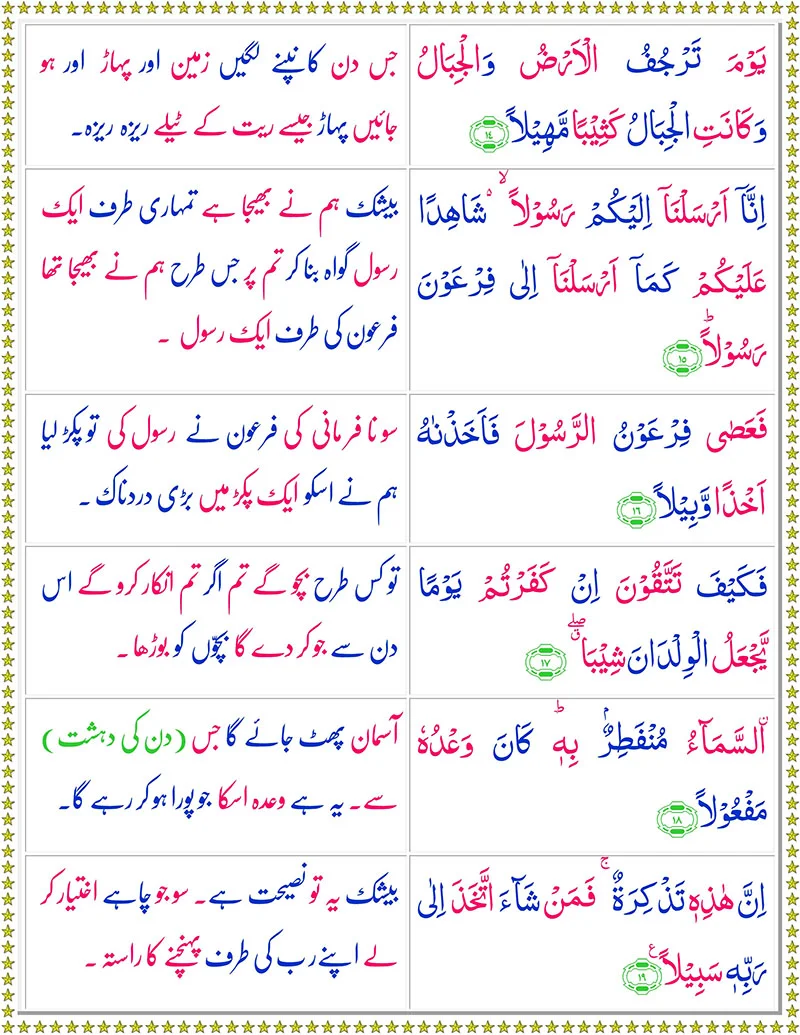 يَوْمَ تَرْجُفُ الْاَرْضُ وَالْجِبَالُ
وَكَانَتِ الْجِبَالُ كَثِيْبًا مَّهِيْلاً ۝۱٤
جس دن کانپنے لگیں زمین اور پہاڑ اور ہو
جائیں پہاڑ جیسے ریت کے ٹیلے ریزہ ریزہ۔
اِنَّآ اَرْسَلْنَآ اِلَيْكُمْ رَسُوْلاً ۙ۬ شَاهِدًا
عَلَيْكُمْ كَمَآ اَرْسَلْنَآ اِلٰى فِرْعَوْنَ
رَسُوْلاً ؕ ۝۱٥
بیشک ہم نے بھیجا ہے تمہاری طرف ایک
رسول گواہ بنا کر تم پر جس طرح ہم نے بھیجا تھا
فرعون کی طرف ایک رسول ۔
فَعَصٰى فِرْعَوْنُ الرَّسُوْلَ فَاَخَذْنٰهُ
اَخْذًا وَّبِيْلاً ۝۱٦
سو نافرمانی کی فرعون نے رسول کی تو پکڑ لیا
ہم نے اسکو ایک پکڑ میں بڑی دردناک ۔
فَكَيْفَ تَتَّقُوْنَ اِنْ كَفَرْتُمْ يَوْمًا
يَّجْعَلُ الْوِلْدَانَ شِيْبَا ۗۖ ۝۱٧
تو کس طرح بچو گے تم اگر تم انکار کرو گے اس
دن سے جو کر دے گا بچّوں کو بوڑھا ۔
اۨلسَّمَآءُ مُنْفَطِرٌۢ بِهٖ ؕ كَانَ وَعْدُهٗ
مَفْعُوْلاً ۝۱٨
آسمان پھٹ جائے گا جس (دن کی دہشت)
سے۔ یہ ہے وعدہ اسکا جو پورا ہو کر رہے گا۔
اِنَّ هٰذِهٖ تَذْكِرَةٌ ۚ فَمَنْ شَآءَ اتَّخَذَ اِلٰى
رَبِّهٖ سَبِيْلاً ع ۝۱٩
بیشک یہ تو نصیحت ہے۔ سو جو چاہے اختیار کر
لے اپنے رب کی طرف پہنچنے کا راستہ ۔